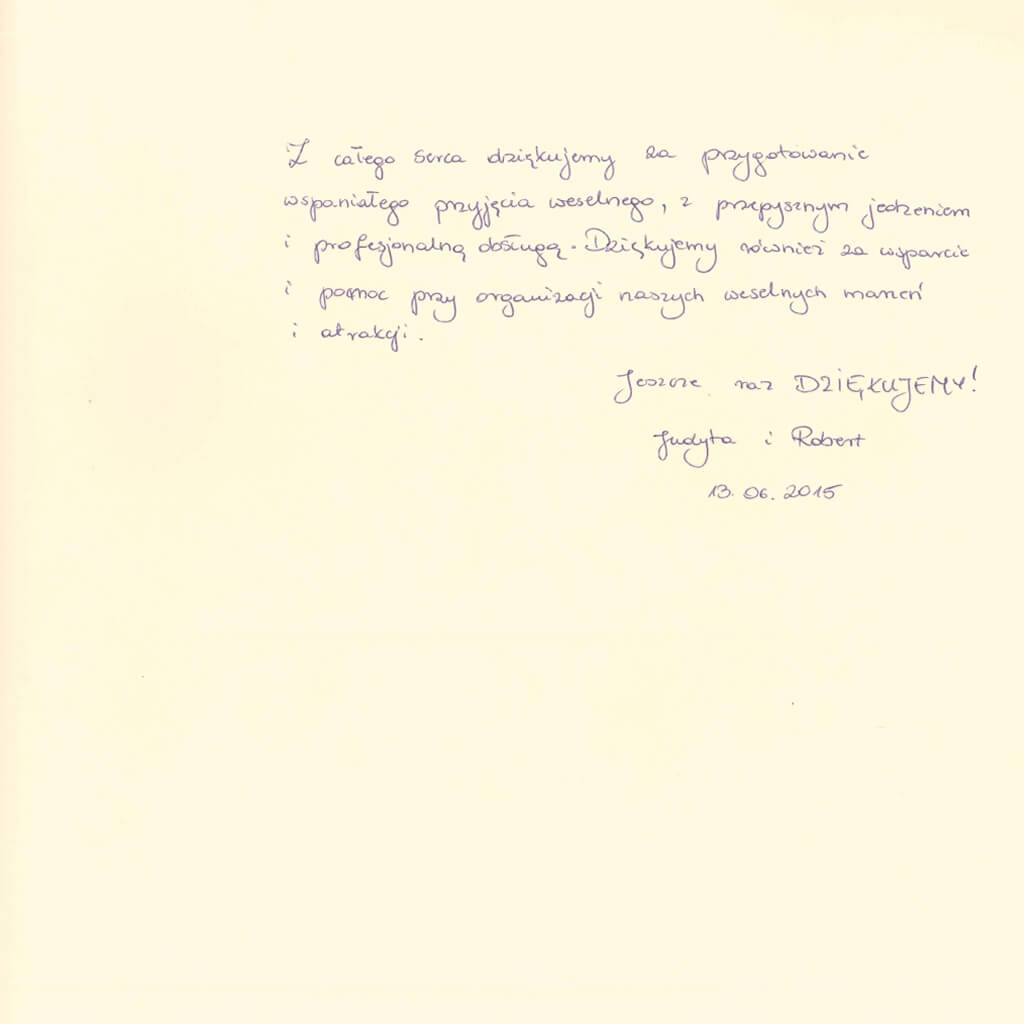 Z całego serca dziękujemy za przygotowanie
wspaniałego przyjęcia weselnego, z przepysznym jedzeniem
i profesjonalną obsługą. Dziękujemy również za wsparcie
i pomoc przy organizacji naszych weselnych marzeń
i atrakcji.
Jeszcze raz DZIĘKUJEMY!
Judyta i Robert
13.06.2015